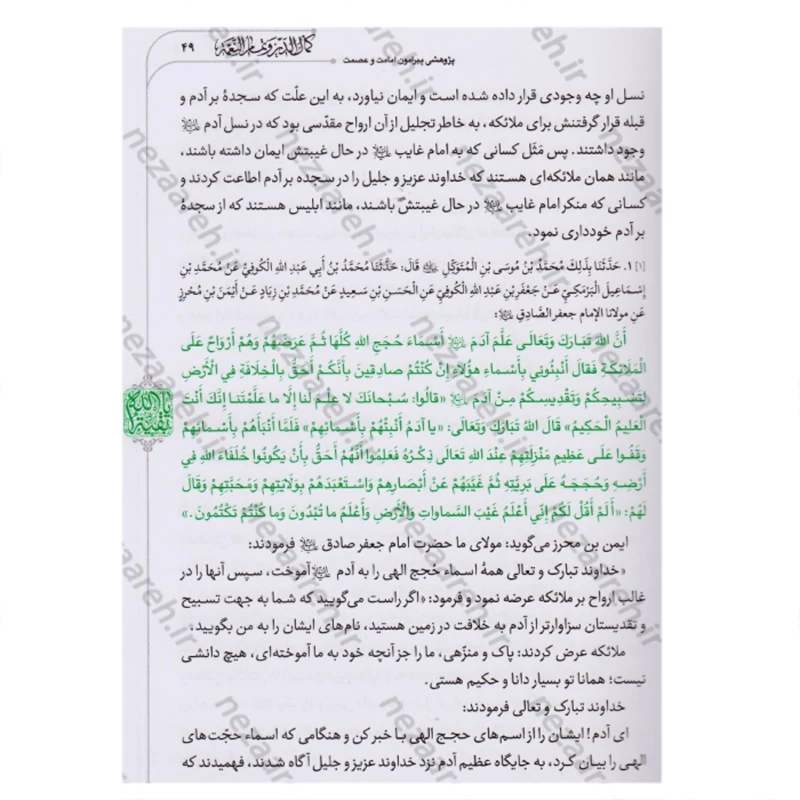 ۴۹
کمال الدین و تمام النعمة
پژوهشی پیرامون امامت و عصمت
نسل او چه وجودی قرار داده شده است و ایمان نیاورد، به این علّت که سجدهٔ بر آدم و
قبله قرار گرفتنش برای ملائکه، به خاطر تجلیل از آن ارواح مقدّسی بود که در نسل آدم
وجود داشتند. پس مَثَل کسانی که به امام غایب در حال غیبتش ایمان داشته باشند،
مانند همان ملائکه‌ای هستند که خداوند عزیز و جلیل را در سجده بر آدم اطاعت کردند و
کسانی که منکر امام غایب در حال غیبتش باشند، مانند ابلیس هستند که از سجدهٔ
بر آدم خودداری نمود.
[۱] ۱. حَدَّثَنَا بِذَلِكَ مُحَمَّدُ بْنُ مُوسَى بْنِ الْمُتَوَكِّلِ قَالَ: حَدَّثَنَا مُحَمَّدُ بْنُ أَبِي عَبْدِ اللهِ الْكُوفِيُّ عَنْ مُحَمَّدِ بْنِ
إِسْمَاعِيلَ الْبَرْمَكِيِّ عَنْ جَعْفَرِ بْنِ عَبْدِ اللهِ الْكُوفِيِّ عَنِ الْحَسَنِ بْنِ سَعِيدٍ عَنْ مُحَمَّدِ بْنِ زِيَادٍ عَنْ أَيْمَنَ بْنِ مُحْرِزٍ
عَنِ مولانا الإمام جعفر الصَّادِقِ :
أَنَّ اللهَ تَبَارَكَ وَتَعَالَى عَلَّمَ آدَمَ أَسْمَاءَ حُجَجِ اللهِ كُلَّهَا ثُمَّ عَرَضَهُمْ وَهُمْ أَرْوَاحٌ عَلَى
الْمَلَائِكَةِ فَقَالَ أَنْبِئُونِي بِأَسْمَاءِ هؤُلَاءِ إِنْ كُنْتُمْ صَادِقِينَ بِأَنَّكُمْ أَحَقُّ بِالْخِلَافَةِ فِي الْأَرْضِ
لِتَسْبِيحِكُمْ وَتَقْدِيسِكُمْ مِنْ آدَمَ «قالُوا: سُبْحانَكَ لا عِلْمَ لَنا إِلَّا ما عَلَّمْتَنا إِنَّكَ أَنْتَ
الْعَلِيمُ الْحَكِيمُ» قَالَ اللهُ تَبَارَكَ وَتَعَالَى: «يا آدَمُ أَنْبِئْهُمْ بِأَسْمائِهِمْ» فَلَمَّا أَنْبَأَهُمْ بِأَسْمائِهِمْ
وَقَفُوا عَلَى عَظِيمِ مَنْزِلَتِهِمْ عِنْدَ اللهِ تَعَالَى ذِكْرُهُ فَعَلِمُوا أَنَّهُمْ أَحَقُّ بِأَنْ يَكُونُوا خُلَفَاءَ اللهِ فِي
أَرْضِهِ وَحُجَجَهُ عَلَى بَرِيَّتِهِ ثُمَّ غَيَّبَهُمْ عَنْ أَبْصَارِهِمْ وَاسْتَعْبَدَهُمْ بِوِلَايَتِهِمْ وَمَحَبَّتِهِمْ وَقَالَ
لَهُمْ: «أَلَمْ أَقُلْ لَكُمْ إِنِّي أَعْلَمُ غَيْبَ السَّماواتِ وَالْأَرْضِ وَأَعْلَمُ ما تُبْدُونَ وَما كُنْتُمْ تَكْتُمُونَ.»
یا بقیة الله
ایمن بن محرز می‌گوید: مولای ما حضرت امام جعفر صادق فرمودند:
«خداوند تبارک و تعالی همهٔ اسماء حُجج الهی را به آدم آموخت، سپس آنها را در
غالب ارواح بر ملائکه عرضه نمود و فرمود: «اگر راست می‌گویید که شما به جهت تسبیح
و تقدیستان سزاوارتر از آدم به خلافت در زمین هستید، نام‌های ایشان را به من بگویید،
ملائکه عرض کردند: پاک و منزّهی، ما را جز آنچه خود به ما آموخته‌ای، هیچ دانشی
نیست؛ همانا تو بسیار دانا و حکیم هستی.
خداوند تبارک و تعالی فرمودند:
ای آدم! ایشان را از اسم‌های حجج الهی با خبر کن و هنگامی که اسماء حجّت‌های
الهی را بیان کرد، به جایگاه عظیم آدم نزد خداوند عزیز و جلیل آگاه شدند، فهمیدند که
nezaareh.ir